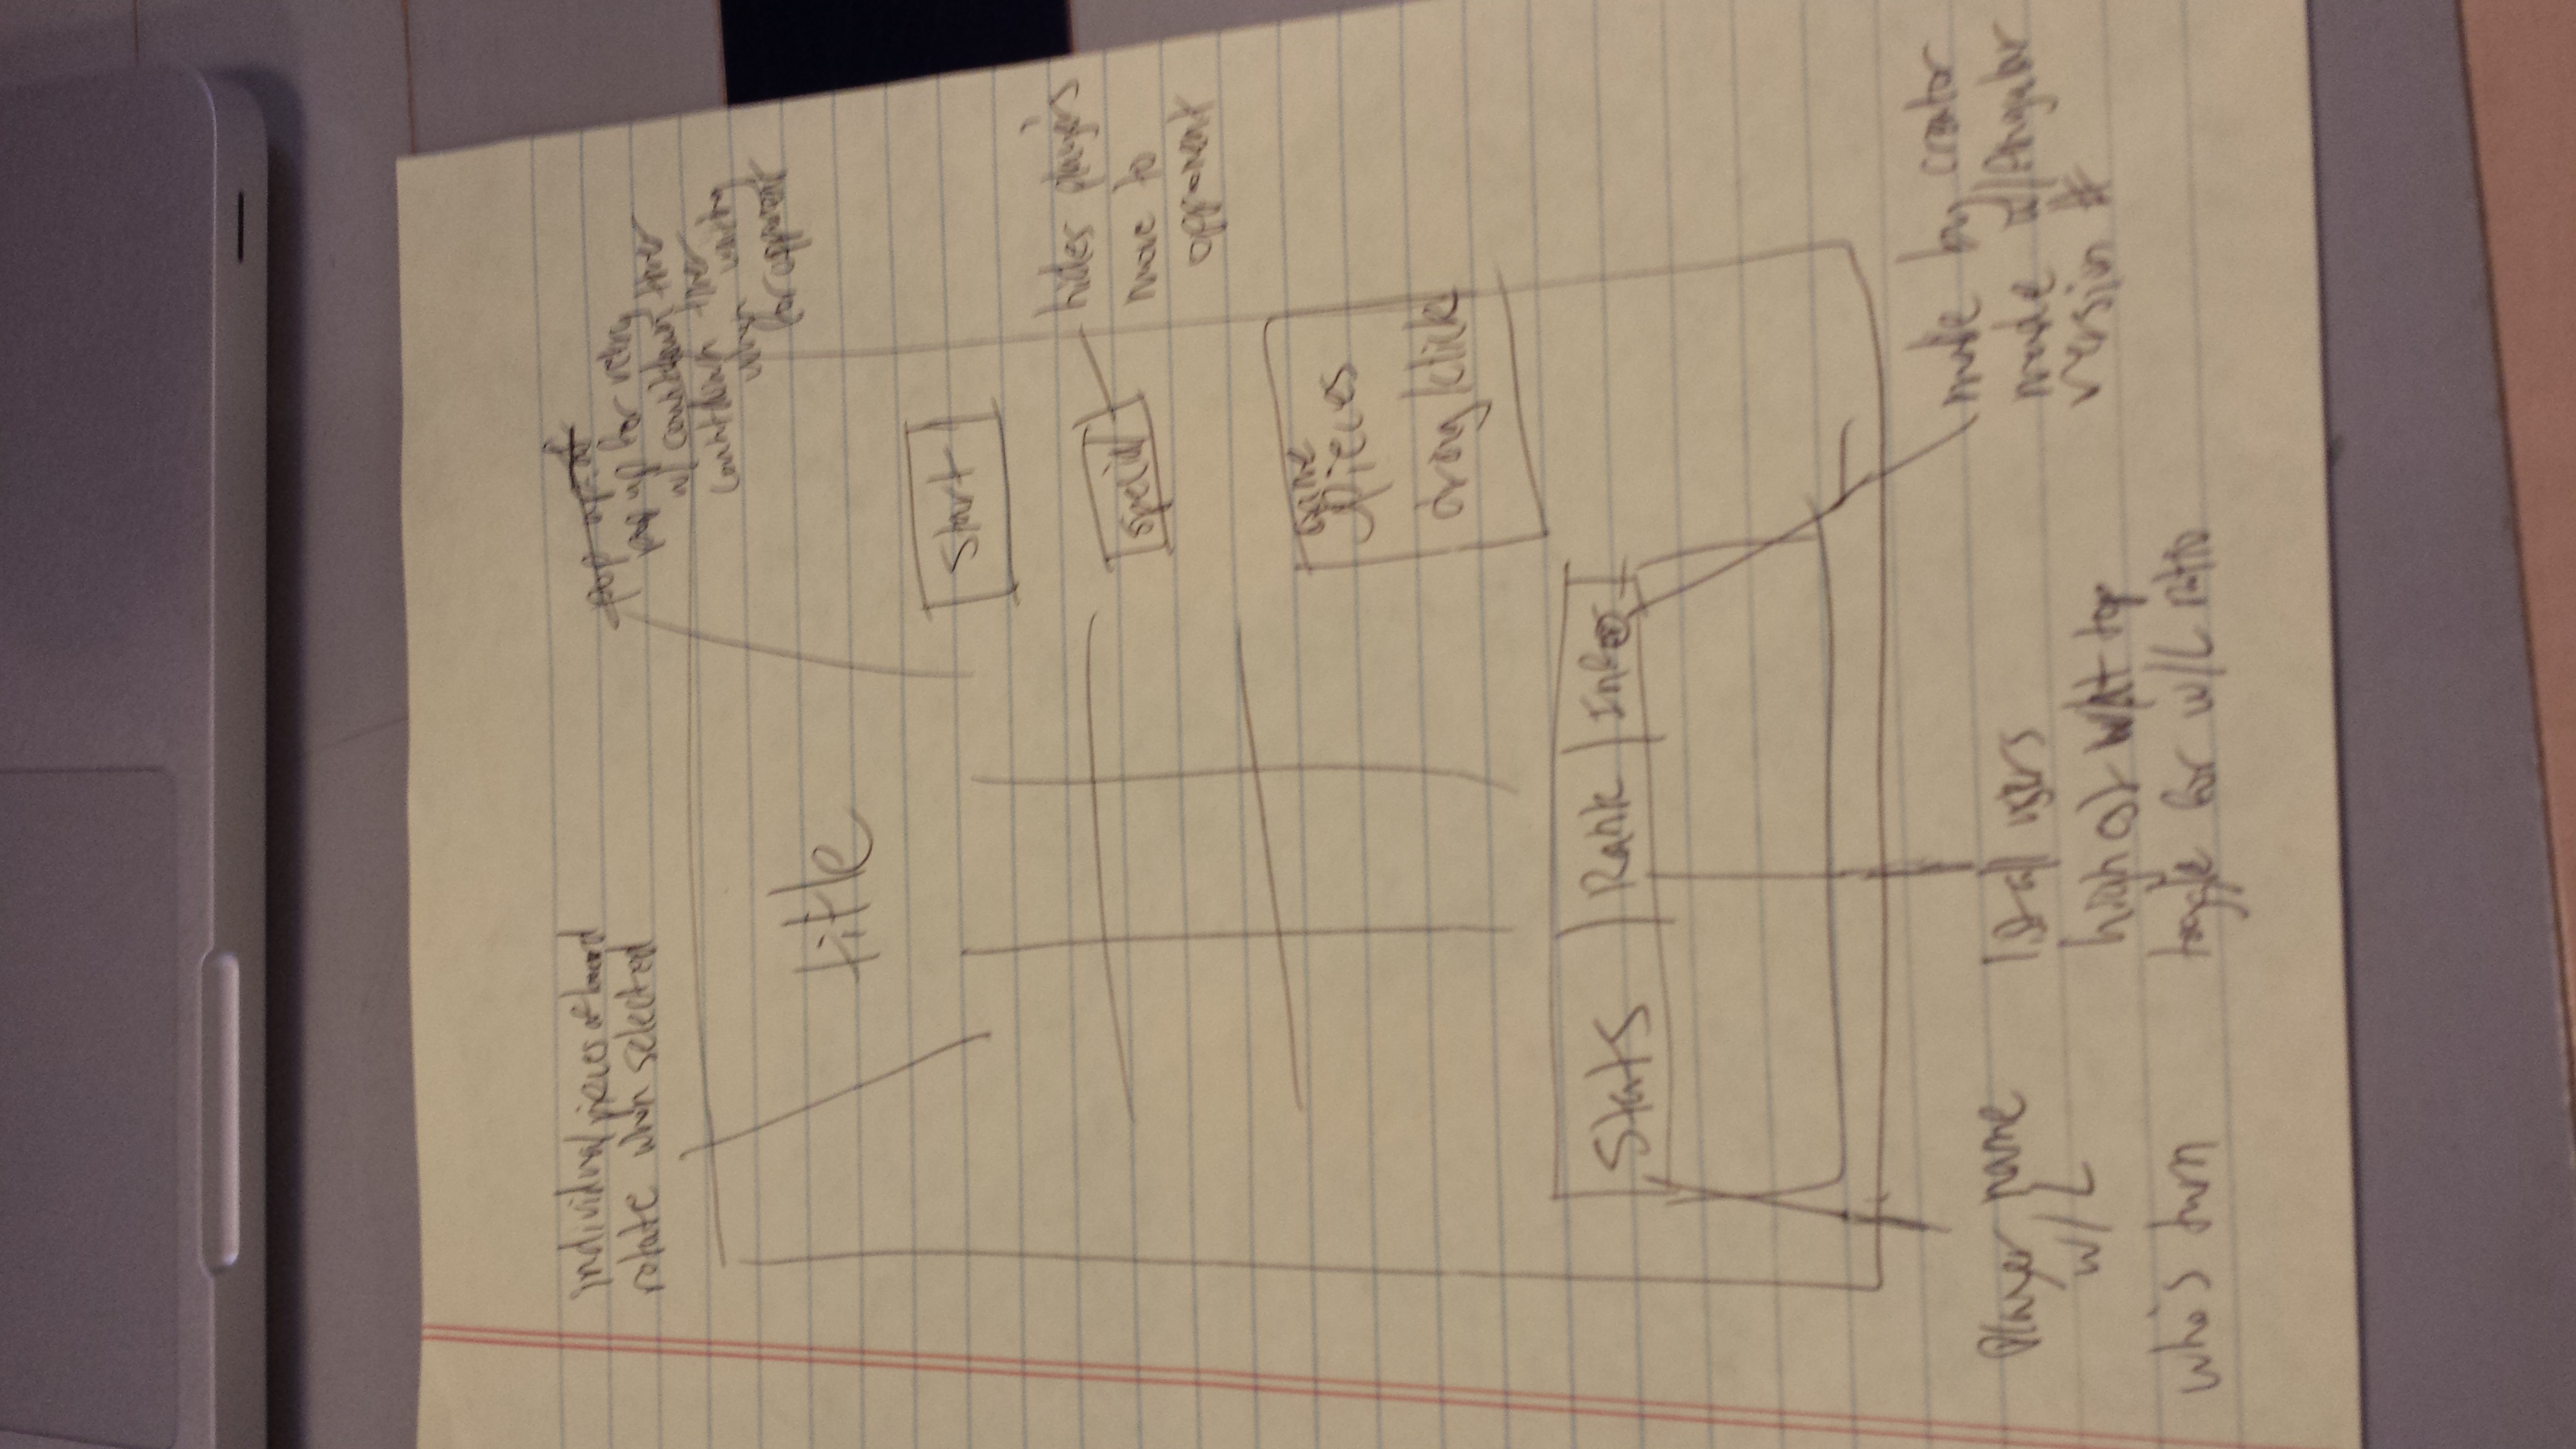 individual pieces of board
rotate when selected
pop up
pop up for retry
w/ countdown timer
countdown timer
when waiting
for opponent
title
Start
special
hides player's
move to
opponent
game
pieces
drag/click
Stats
Rank
Info
Player name
w/L
who's turn
list all users
highest w/ at top
toggle for w/L ratio
made by creator
made w/Angular
version #